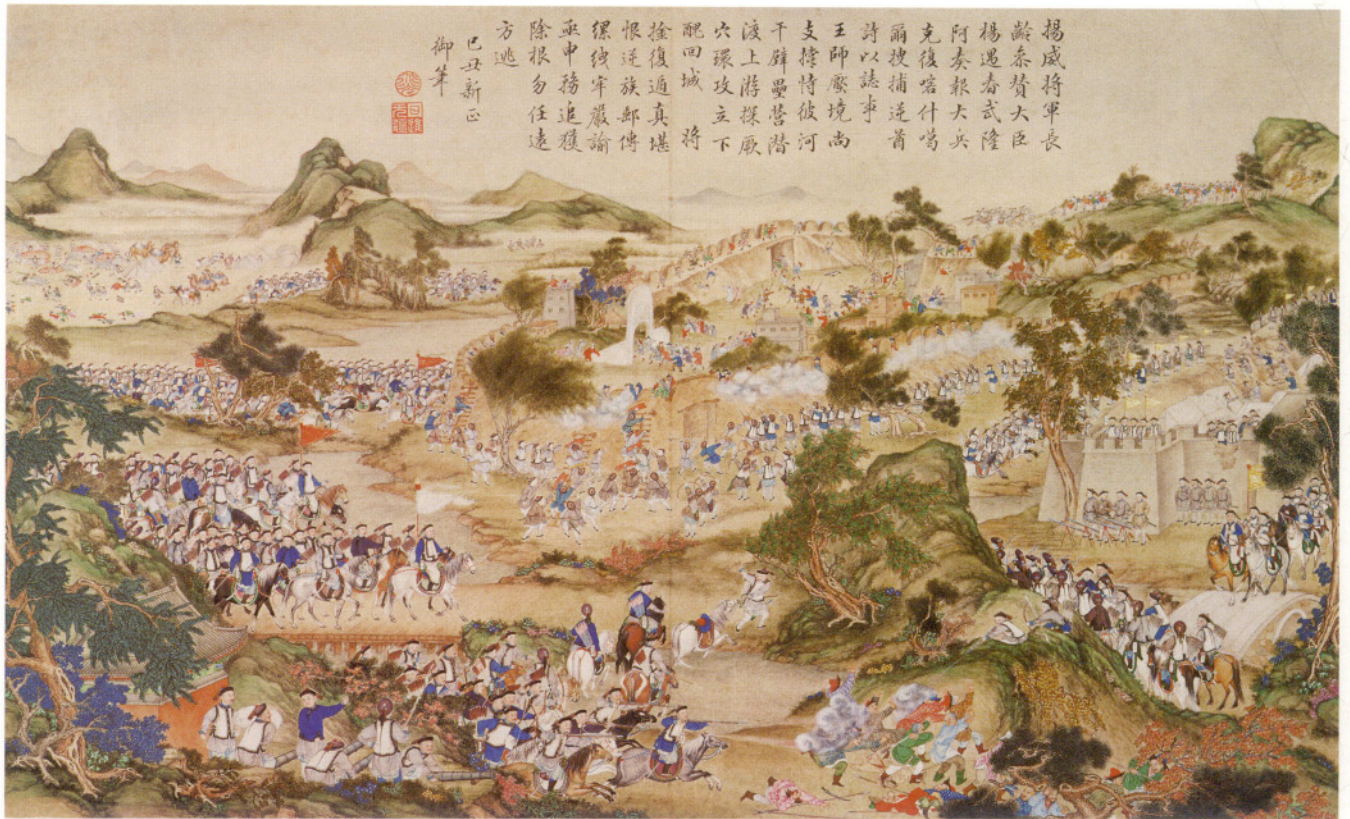 揚威將軍長
齡叅贊大臣
楊遇春武隆
阿奏報大兵
克復喀什噶
爾搜捕逆酋
詩以誌事
王師壓境尚
支撐恃彼河
干壁壘營潛
渡上游探厥
穴環攻立下
醜回城 將
擒復遁真堪
恨逆族郵傳
縲絏牢嚴諭
亟申務追獲
除根勿任遠
方逃
己丑新正
御筆